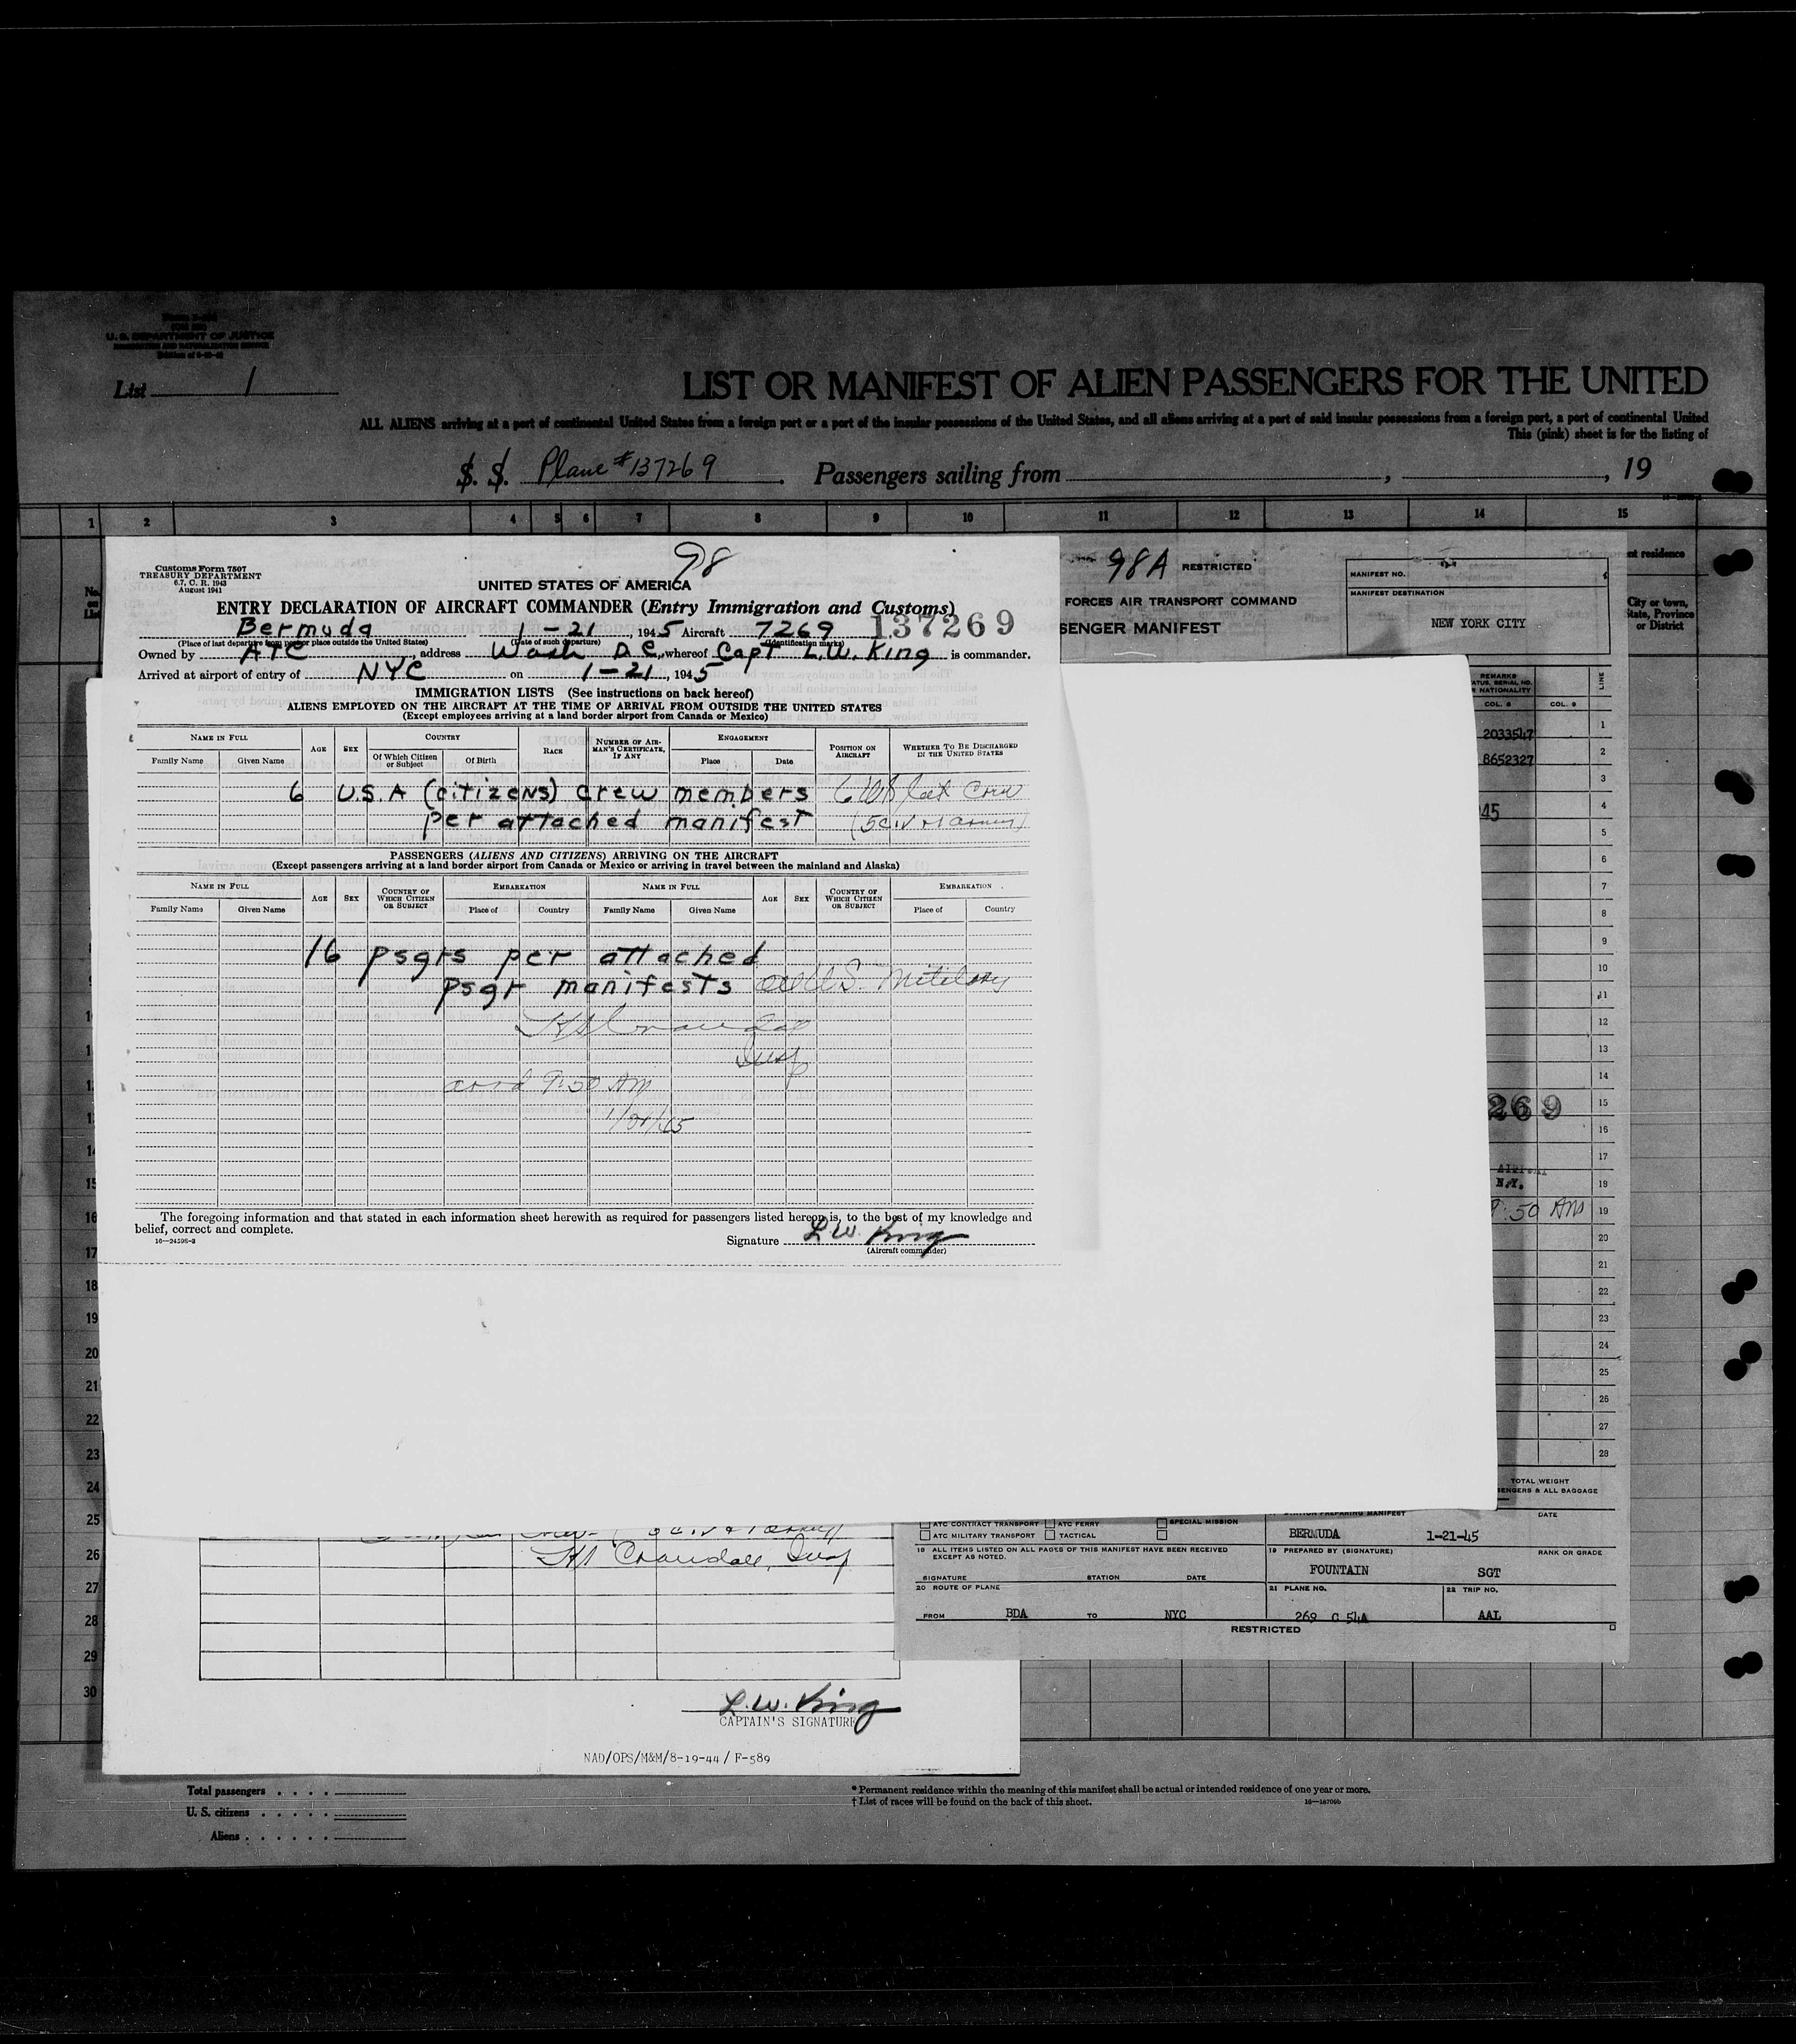 U. S. DEPARTMENT OF JUSTICE
IMMIGRATION AND NATURALIZATION SERVICE
List 1
LIST OR MANIFEST OF ALIEN PASSENGERS FOR THE UNITED
ALL ALIENS arriving at a port of continental United States from a foreign port or a port of the insular possessions of the United States, and all aliens arriving at a port of said insular possessions from a foreign port, a port of continental United
This (pink) sheet is for the listing of
S. S. Plane #137269 . Passengers sailing from , , 19
1 2 3 4 5 6 7 8 9 10 11 12 13 14 15
98
Customs Form 7507
TREASURY DEPARTMENT
6.7, C. R. 1943
August 1941
UNITED STATES OF AMERICA
ENTRY DECLARATION OF AIRCRAFT COMMANDER (Entry Immigration and Customs)
137269
Bermuda 1-21, 1945 Aircraft 7269
(Place of last departure from port or place outside the United States) (Date of such departure) (Identification marks)
Owned by ATC, address Wash D C, whereof Capt L.W. King is commander.
Arrived at airport of entry of NYC on 1-21, 1945
IMMIGRATION LISTS (See instructions on back hereof)
ALIENS EMPLOYED ON THE AIRCRAFT AT THE TIME OF ARRIVAL FROM OUTSIDE THE UNITED STATES
(Except employees arriving at a land border airport from Canada or Mexico)
NAME IN FULL AGE SEX COUNTRY RACE NUMBER OF AIRMAN'S CERTIFICATE, IF ANY ENGAGEMENT POSITION ON AIRCRAFT WHETHER TO BE DISCHARGED IN THE UNITED STATES
Family Name Given Name Of Which Citizen or Subject Of Birth Place Date
6 U.S.A (citizens) crew members
per attached manifest
PASSENGERS (ALIENS AND CITIZENS) ARRIVING ON THE AIRCRAFT
(Except passengers arriving at a land border airport from Canada or Mexico or arriving in travel between the mainland and Alaska)
NAME IN FULL AGE SEX COUNTRY OF WHICH CITIZEN OR SUBJECT EMBARKATION NAME IN FULL AGE SEX COUNTRY OF WHICH CITIZEN OR SUBJECT EMBARKATION
Family Name Given Name Place of Country Family Name Given Name Place of Country
16 psgrs per attached
psgr manifests all U.S. Military
Insp
9:50 AM
The foregoing information and that stated in each information sheet herewith as required for passengers listed hereon is, to the best of my knowledge and
belief, correct and complete.
16—24598-2
Signature L.W. King
(Aircraft commander)
98A RESTRICTED
FORCES AIR TRANSPORT COMMAND
SENGER MANIFEST
MANIFEST NO.
MANIFEST DESTINATION
NEW YORK CITY
nt residence
City or town,
State, Province
or District
REMARKS
ATUS, SERIAL NO.
NATIONALITY
LINE
COL. 8 COL. 9
1
2033547
2
8652327
3
45 4
5
6
7
8
9
10
11
12
13
14
269 15
16
17
N.Y. 18
9:50 AM 19
20
21
22
23
24
25
26
27
28
TOTAL WEIGHT
SENGERS & ALL BAGGAGE
14
15
16
17
18
19
20
21
22
23
24
25
26
27
28
29
30
Insp
L.W. King
CAPTAIN'S SIGNATURE
NAD/OPS/M&M/8-19-44/ F-589
ATC CONTRACT TRANSPORT ATC FERRY SPECIAL MISSION
ATC MILITARY TRANSPORT TACTICAL
STATION PREPARING MANIFEST DATE
BERMUDA 1-21-45
18 ALL ITEMS LISTED ON ALL PAGES OF THIS MANIFEST HAVE BEEN RECEIVED
EXCEPT AS NOTED.
SIGNATURE STATION DATE
19 PREPARED BY (SIGNATURE) RANK OR GRADE
FOUNTAIN SGT
20 ROUTE OF PLANE
FROM BDA TO NYC
21 PLANE NO. 22 TRIP NO.
269 C 54A AAL
RESTRICTED
Total passengers
U. S. citizens
Aliens
* Permanent residence within the meaning of this manifest shall be actual or intended residence of one year or more.
† List of races will be found on the back of this sheet.